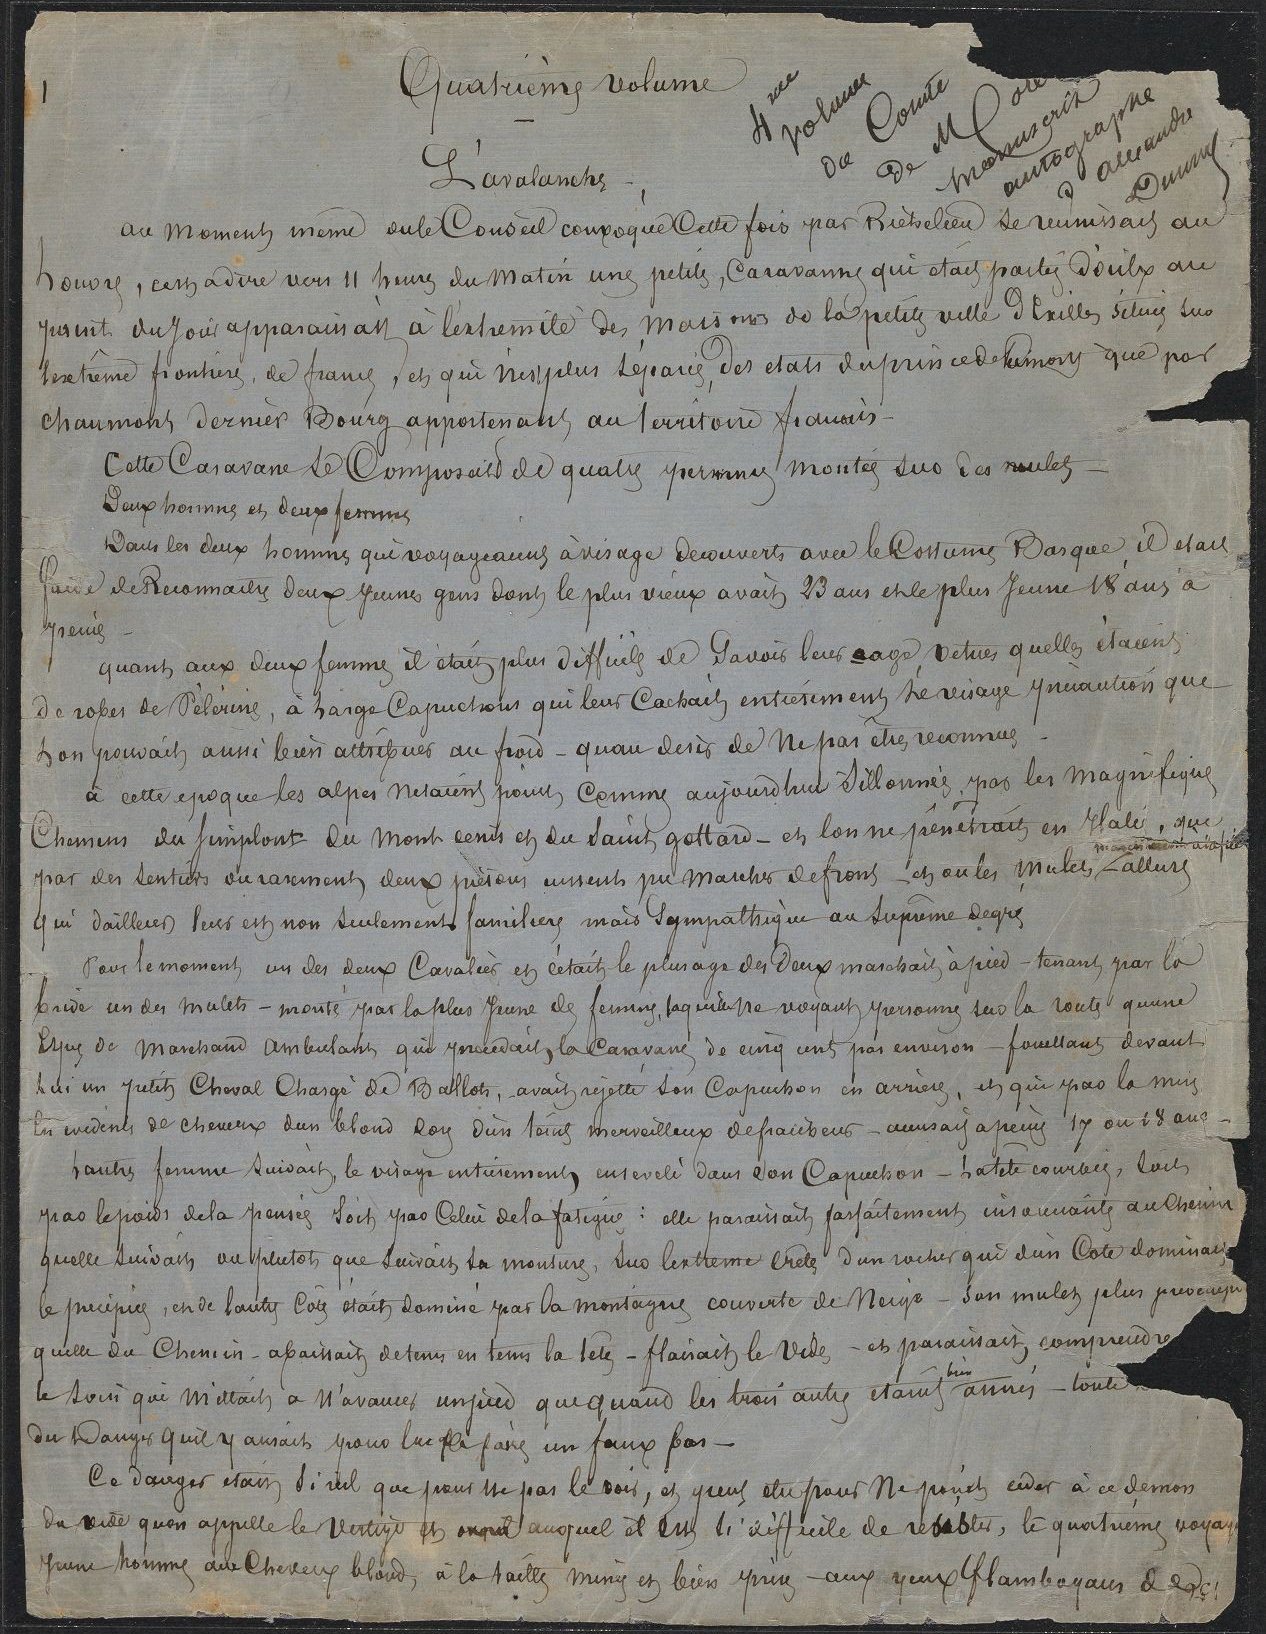 1
Quatrième volume
4me
volume
du Comte
de M
manuscrit
autographe
d'alexandre
Dumas
L'avalanche
au moment meme ou le Conseil convoqué Cette fois par Richelieu se reunissait au
Louvre, cest adire vers 11 heures du matin une petite, Caravanne qui etait partie d'oulx au
point du Jour apparaissait à l'extremité des maisons de la petite ville d'Exilles située sur
lextrême frontiere, de france, et qui n'est plus séparée, des etats du prince de Piemont que par
chaumont dernier Bourg appartenant au territoire francais -
Cette Caravane se Composait de quatre personnes montées sur des mulets -
Deux hommes et deux femmes
Dans les deux hommes qui voyageaient à visage decouverts avec le Costume Basque il etait
facile de Reconnaitre deux jeunes gens dont le plus vieux avait 23 ans et le plus Jeune 18 ans à
peine -
quant aux deux femmes il était plus difficile de savoir leur age, vetues quelles étaient
de robes de Pélérine, à large Capuchons qui leur Cachait entierement le visage précaution que
lon pouvait aussi bien attribuer au froid - quau desir de Ne pas être reconnues -
à cette epoque les alpes netaient point Comme aujourdhui sillonnées, par les magnifiques
Chemins du simplont du mont cenis et du saint gottard - et lon ne pénétrait en Italie, que
par des sentiers ou rarement deux piétons eussent pu marcher de front - et ou les mulets allure
qui dailleurs leur est non seulement familiere mais sympathique au suprême degré
Pour le moment un des deux Cavaliers et cétait le plus age des Deux marchait à pied - tenant par la
bride un des mulets - monté par la plus Jeune des femmes, laquelle ne voyant personne sur la route quune
Espece de marchand ambulant qui precedait, la Caravane de cinq cent pas environ - fouettant devant
lui un petit Cheval Chargé de Ballots, - avait rejetté son Capuchon en arriere, et qui par la mise
En evidence de cheveux dun blond doré dun teint merveilleux de fraicheur - accusait apeine 17 ou 18 ans -
Lautre femme suivait, le visage entierement enseveli dans son Capuchon - La tete courbée, soit
par le poids de la pensée soit par Celui de la fatigue : elle paraissait parfaitement insouciante au Chemin
quelle suivait ou plutot que suivait sa monture, sur lextreme crête dun rocher qui dun Coté dominait
le precipice, et de lautre Coté était dominé par la montagne couverte de Neige - son mulet plus préoccupé
quelle du Chemin - abaissait de tems en tems la tete - flairait le Vide - et paraissait, comprendre
le soin qui mettait a N'avancer un pied que quand les trois autres etaient bien - toute
du Danger quil y aurait pour lui de faire un faux pas -
Ce danger etait si reel que pour ne pas le voir, et peut etre pour Ne point ceder à ce demon
du vide quon appelle le vertige et auquel il est si difficile de resister, le quatrieme voyag
jeune homme aux Cheveux blond, à la taille mince et bien prise - aux yeux flamboyans de